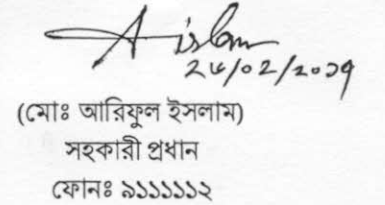 Aislam
(মোঃ আরিফুল ইসলাম)
সহকারী প্রধান
ফোনঃ ৯১১১১১২